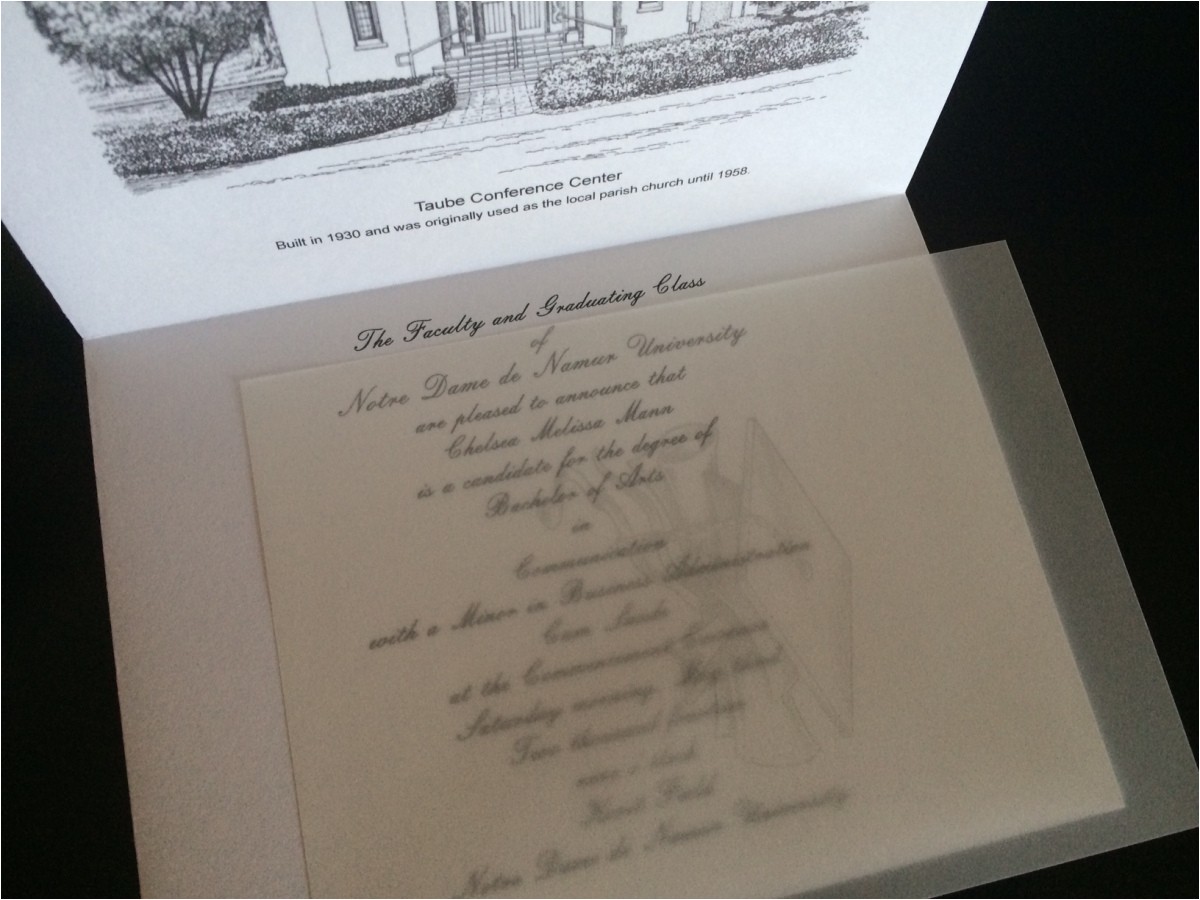 Taube Conference Center
Built in 1930 and was originally used as the local parish church until 1958.
The Faculty and Graduating Class
of
Notre Dame de Namur University
are pleased to announce that
Chelsea Melissa Mann
is a candidate for the degree of
Bachelor of Arts
in
Communication
with a Minor in Business Administration
Cum Laude
at the Commencement Exercises
Saturday morning, May third
Two thousand fourteen
Notre Dame de Namur University